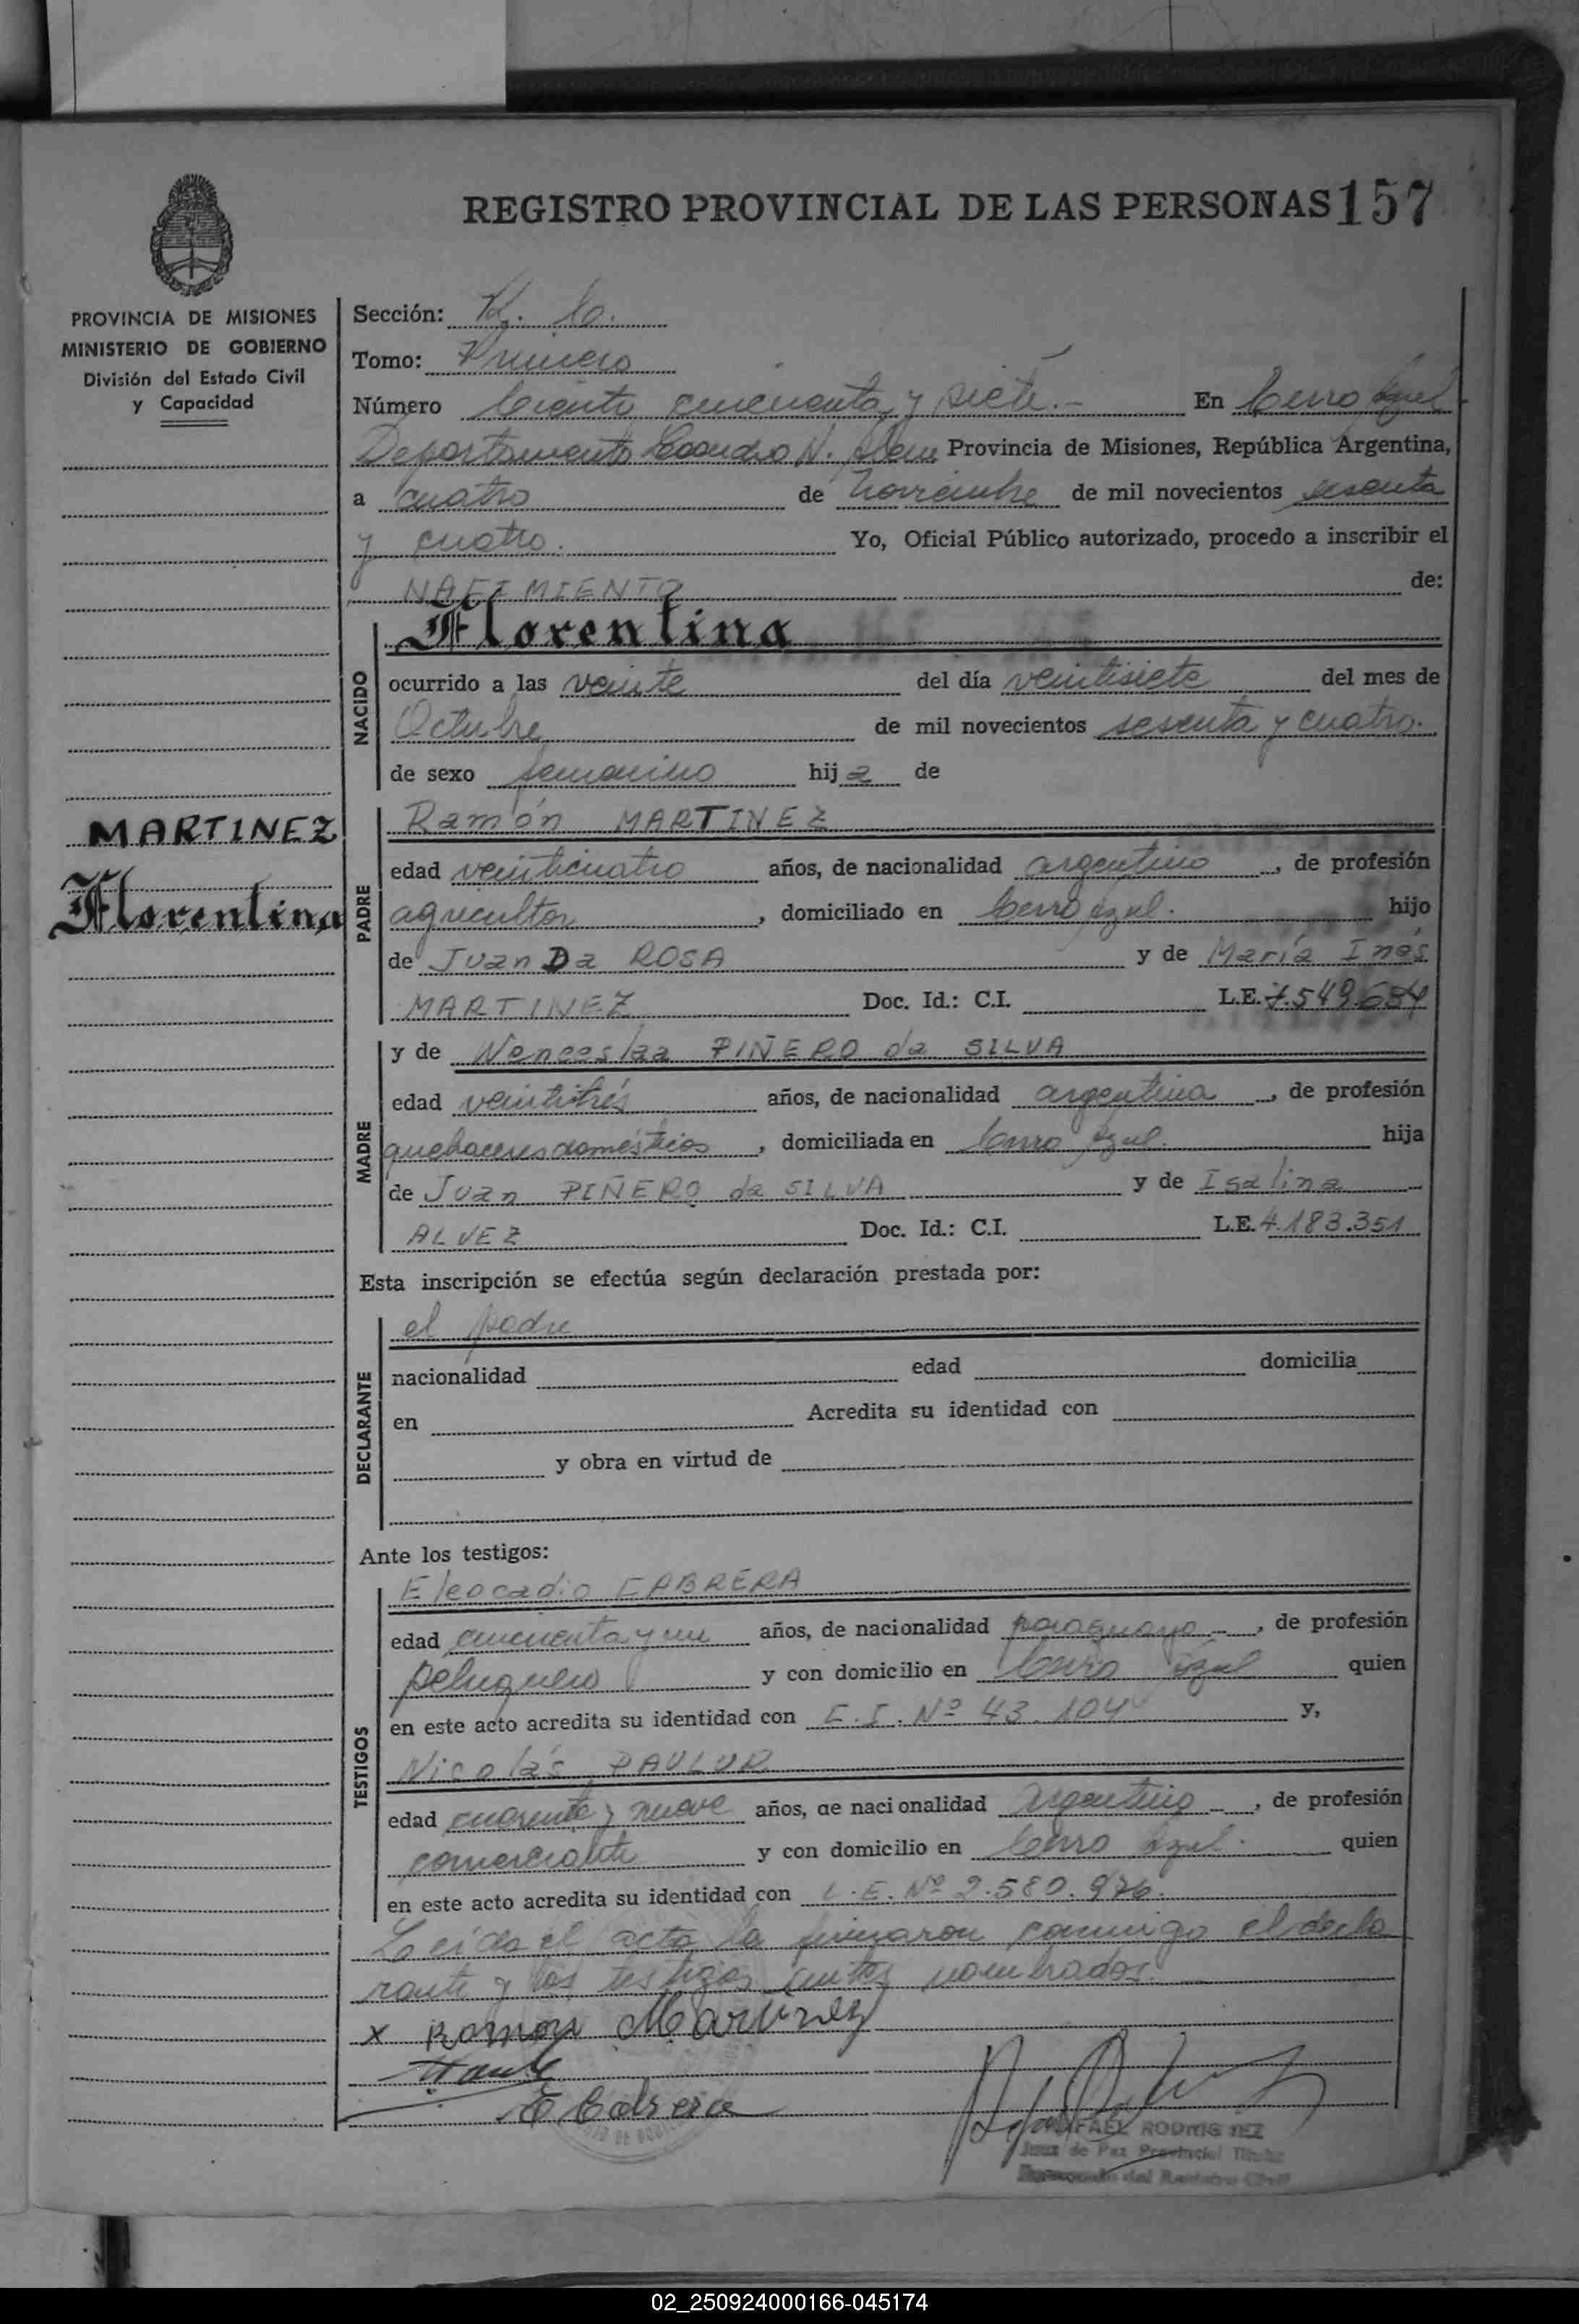 REGISTRO PROVINCIAL DE LAS PERSONAS 157
PROVINCIA DE MISIONES
MINISTERIO DE GOBIERNO
División del Estado Civil
y Capacidad
Sección:
Tomo: Primero
Número Ciento cincuenta y siete.- En Cerro Azul
Departamento Leandro N. Alem Provincia de Misiones, República Argentina,
a cuatro de noviembre de mil novecientos sesenta
y cuatro. Yo, Oficial Público autorizado, procedo a inscribir el
NACIMIENTO de:
NACIDO
Florentina
ocurrido a las veinte del día veintisiete del mes de
Octubre de mil novecientos sesenta y cuatro.
de sexo femenino hija de
MARTINEZ
Florentina
PADRE
Ramón MARTINEZ
edad veinticuatro años, de nacionalidad argentino, de profesión
agricultor, domiciliado en Cerro Azul. hijo
de Juan Da ROSA y de María Inés
MARTINEZ Doc. Id.: C.I. L.E. 7.549.654
MADRE
y de Wenceslaa PIÑERO da SILVA
edad veintitrés años, de nacionalidad argentina, de profesión
quehaceres domésticos, domiciliada en Cerro Azul. hija
de Juan PIÑERO da SILVA y de Isalina
ALVEZ Doc. Id.: C.I. L.E. 4.183.351
Esta inscripción se efectúa según declaración prestada por:
DECLARANTE
el padre
nacionalidad edad domicilia
en Acredita su identidad con
y obra en virtud de
Ante los testigos:
TESTIGOS
Eleocadio CABRERA
edad cincuenta y un años, de nacionalidad paraguayo -, de profesión
peluquero y con domicilio en Cerro Azul quien
en este acto acredita su identidad con C.I. Nº 43.104 y,
Nicolás PAULUR
edad cuarenta y nueve años, de nacionalidad argentino -, de profesión
comerciante y con domicilio en Cerro Azul. quien
en este acto acredita su identidad con L.E. Nº 2.580.976.
Leída el acta la firmaron conmigo el decla
rante y los testigos antes nombrados.
x Ramon Martinez
E Cabrera
RAFAEL RODRIGUEZ
Juez de Paz Provincial Titular
Encargado del Registro Civil
02_250924000166-045174